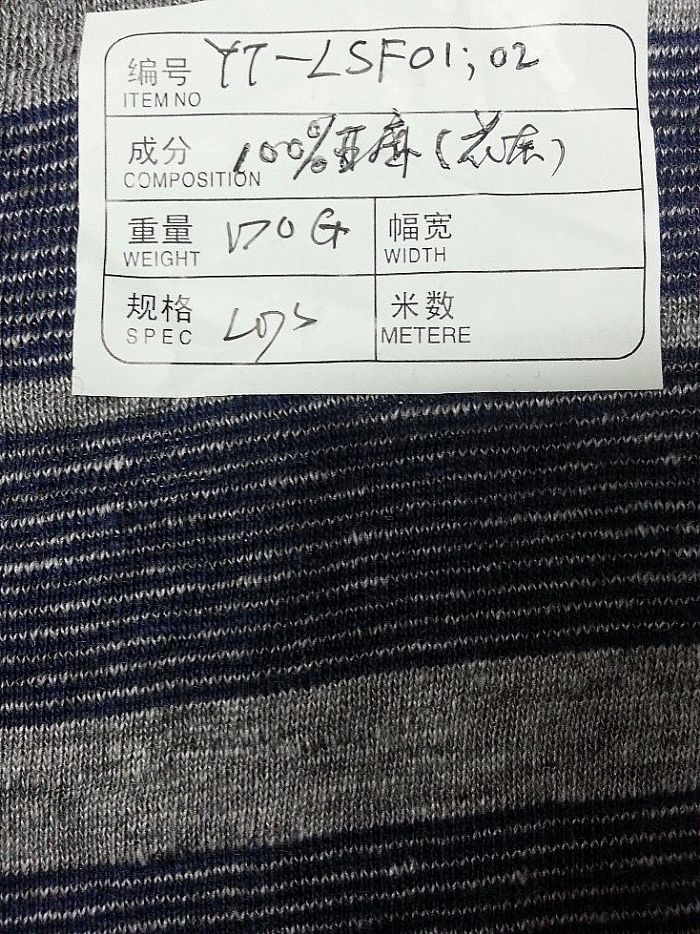 编号 YT-LSF01;02
ITEM NO
成分 100%亚麻(花灰)
COMPOSITION
重量 170G 幅宽
WEIGHT WIDTH
规格 米数
SPEC METERE